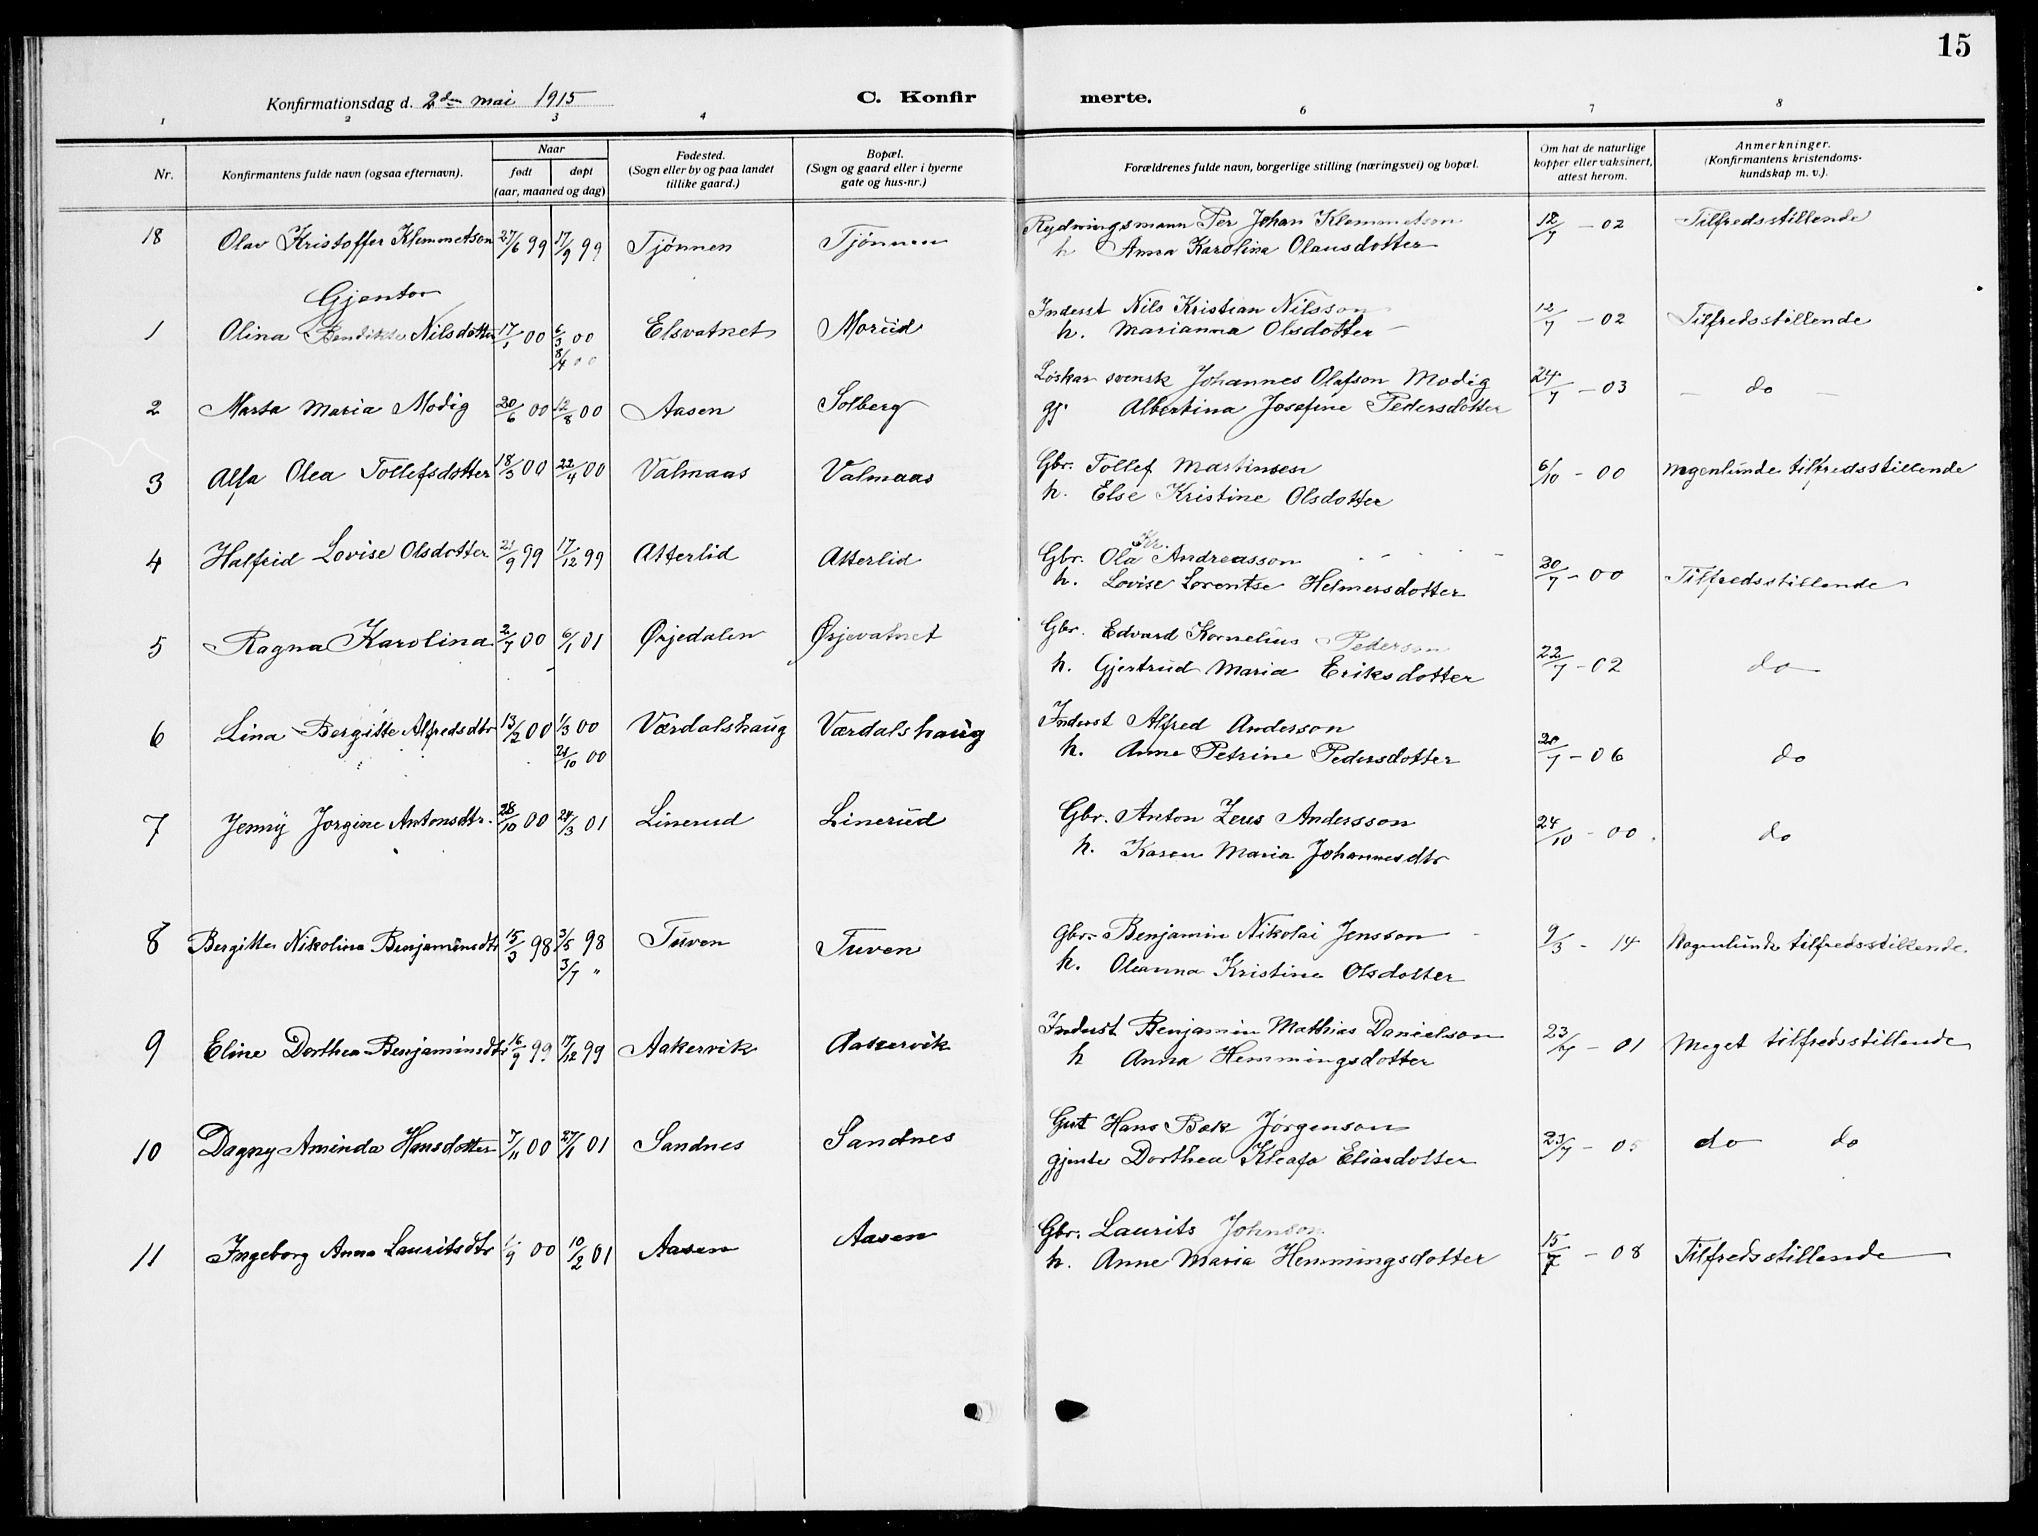 15
Konfirmationsdag d. 2den mai 1915
C. Konfirmerte.
1 2 3 4 6 7 8
Nr.
Konfirmantens fulde navn (ogsaa efternavn).
Naar
født døpt
(aar, maaned og dag)
Fødested.
(Sogn eller by og paa landet
tillike gaard.)
Bopæl.
(Sogn og gaard eller i byerne
gate og hus-nr.)
Forældrenes fulde navn, borgerlige stilling (næringsvei) og bopæl.
Om hat de naturlige
kopper eller vaksinert,
attest herom.
Anmerkninger.
(Konfirmantens kristendoms-
kundskap m. v.).
18 Olav Kristoffer Klemmetson 27/6 99 17/9 99 Tjønnen Tjønnen Rydningsmann Per Johan Klemmetson 12/7 - 02 Tilfredsstillende
h Anna Karolina Olausdotter
Gjentor
1 Olina Bendikte Nilsdotter 17/1 00 6/3 00 Elsvatnet Morud Inderst Nils Kristian Nilsson 12/7 - 02 Tilfredsstillende
8/4 00 h. Marianna Olsdotter -
2 Marta Maria Modig 20/6 00 12/8 00 Aasen Solberg Løskar svensk Johannes Olafson Modig 24/7 - 03 - do -
gj. Albertina Josefine Pedersdotter
3 Alfa Olea Tollefsdotter 18/3 00 22/4 00 Valmaas Valmaas Gbr. Tollef Martinsen 6/10 - 00 Nogenlunde tilfredsstillende
h. Else Kristine Olsdotter
4 Halfrid Lovise Olsdotter 21/9 99 17/12 99 Atterlid Atterlid Gbr. Ola Kr. Andreasson 20/7 - 00 Tilfredsstillende
h. Lovise Lorentse Helmersdotter
5 Ragna Karolina 2/7 00 6/1 01 Ørjedalen Ørjevatnet Gbr. Edvard Kornelius Pederson 22/7 - 02 do
h. Gjertrud Maria Eriksdotter
6 Lina Bergitte Alfredsdtr 13/2 00 1/3 00 Værdalshaug Værdalshaug Inderst Alfred Anderson 20/7 - 06 do
21/10 00 h. Anne Petrine Pedersdotter
7 Jenny Jorgine Antonsdtr. 28/10 00 24/3 01 Linerud Linerud Gbr. Anton Zeus Andersson 24/10 - 00 do
h. Karen Maria Johannesdtr
8 Bergitte Nikolina Benjaminsdtr 15/3 98 3/5 98 Tuven Tuven Gbr. Benjamin Nikolai Jensson - 9/3 - 14 Nogenlunde tilfredsstillende.
3/7 " h. Oleanna Kristine Olsdotter
9 Eline Dorthea Benjaminsdtr 16/9 99 17/12 99 Aakervik Aakervik Inderst Benjamin Mathias Danielson 23/7 - 01 Meget tilfredsstillende
h Anna Hemmingsdotter
10 Dagny Aminda Hansdotter 7/11 00 27/1 01 Sandnes Sandnes Gut Hans Bek Jørgenson 23/7 - 05 do do
gjente Dorthea Kleafa Eliasdotter
11 Ingeborg Anna Lauritsdtr 1/9 00 10/2 01 Aasen Aasen Gbr. Laurits Johnson 15/7 - 08 Tilfredsstillende
h. Anne Maria Hemmingsdotter